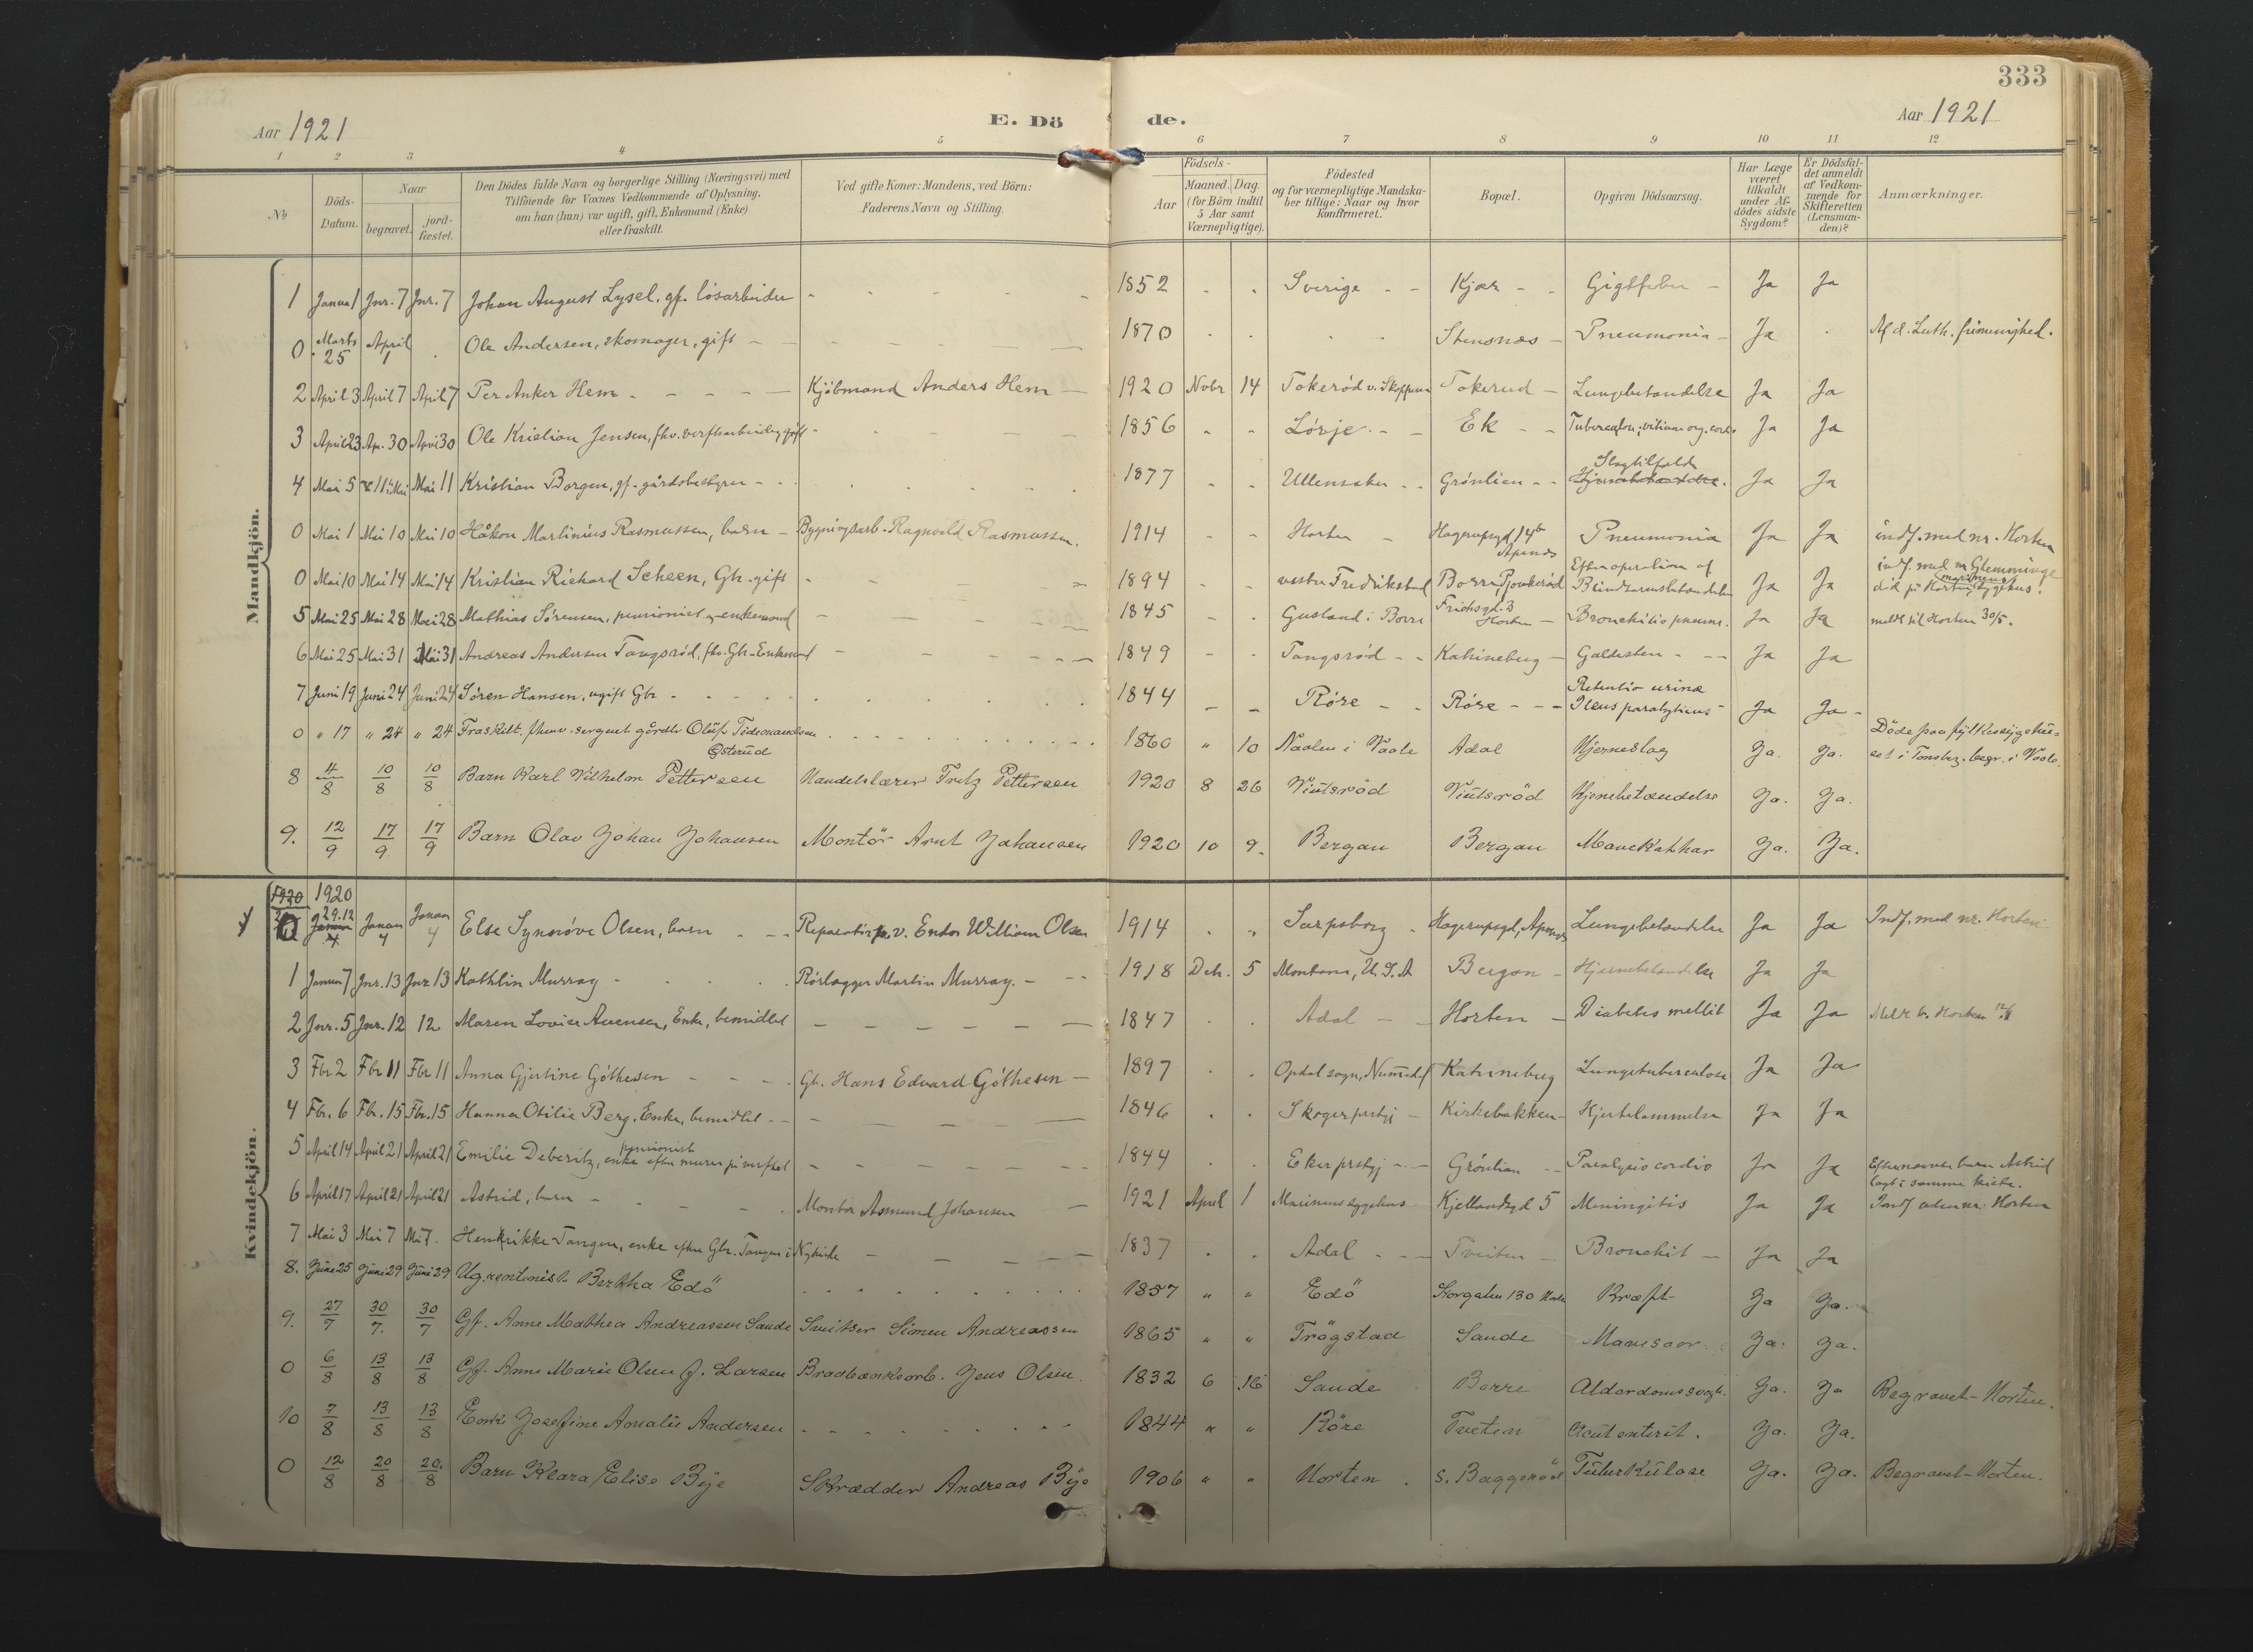 333
Aar 1921
E. Dö de.
Aar 1921
1 2 3 4 5 6 7 8 9 10 11 12
No
Döds-Datum.
Naar
begravet.
jord-fæstet.
Den Dödes fulde Navn og borgerlige Stilling (Næringsvei) med
Tilföiende for Voxnes Vedkommende af Oplysning,
om han (hun) var ugift, gift, Enkemand (Enke)
eller fraskilt.
Ved gifte Koner: Mandens, ved Börn:
Faderens Navn og Stilling.
Födsels-
Aar
Maaned. Dag.
(for Börn indtil
5 Aar samt
Værnepligtige).
Födested
og for værnepligtige Mandska-
ber tillige: Naar og hvor
konfirmeret.
Bopæl.
Opgiven Dödsaarsag.
Har Læge
været
tilkaldt
under Af-
dödes sidste
Sygdom?
Er Dödsfal-
det anmeldt
af Vedkom-
mende for
Skifteretten
(Lensman-
den)?
Anmærkninger.
Mandkjön.
1 Janua 1 Jnr. 7 Jnr. 7 Johan August Lysel, gf. løsarbeider - 1852 - - Sverige - - Kjær - - Gigtfeber - Ja Ja
0 Marts 25 April 1 Ole Andersen, skomager, gift - 1870 Stensnæs - Pneumonia - Ja Af d. Luth. frimenighed.
2 April 3 April 7 April 7 Per Anker Hem - Kjöbmand Anders Hem - 1920 Novbr 14 Tokerød v. Skoppum Tokerud - Lungebetændelse Ja Ja
3 April 23 Ap. 30 April 30 Ole Kristian Jensen, fhv. verftsarbeider, gift - 1856 - - Lörje - - Ek - - Ja Ja
4 Mai 5 11 Mai Mai 11 Kristian Borgen, gf. gårdsbestyrer - 1877 - - Ullensaker - - Grönlien - - Slagtilfælde Ja Ja
0 Mai 1 Mai 10 Mai 10 Håkon Martinius Rasmussen, barn - Bygningsarb. Ragnvald Rasmussen. 1914 - - Horten - Hagerupsgd, 14b Apenes Pneumonia Ja Ja indf. med nr. Horten
0 Mai 10 Mai 14 Mai 14 Kristian Richard Scheen, Gb. gift - 1894 - - vestre Fredrikstad Borre, Efter operation af Blindtarmsbetændelse Ja Ja indf. med nr Glemminge död på Horten marinens sygehus.
5 Mai 25 Mai 28 Mai 28 Mathias Sörensen, pensionist, enkemand - 1845 - - Gusland i Borre Frichsgd. 3 Horten - Bronchitis pneum. Ja Ja meldt til Horten 30/5.
6 Mai 25 Mai 31 Mai 31 Andreas Andersen Tangsröd, fhv. Gb. Enkemand - 1849 - - Tangsröd - - Katrineberg - Galdesten - - Ja Ja
7 Juni 19 Juni 24 Juni 24 Sören Hansen, ugift Gbr. - 1844 - - Röre - - Röre - - Retentio urinæ Ileus paralyticus - Ja Ja -
0 " 17 " 24 " 24 Fraskilt. fhenv. sergent gårdbr Oluf Tidemandsen Österud 1860 " 10 Naalen i Vaale Adal Hjerneslag Ja. Ja. Döde paa fylkessygehu-set i Tønsbg. begr. i Vaale.
8 4/8 10/8 10/8 Barn Karl Vilhelm Pettersen Handelslærer Fritz Pettersen 1920 8 26 Viulsröd Viulsröd Hjernebetændelse Ja. Ja.
9. 12/9 17/9 17/9 Barn Olav Johan Johansen Montör Arnt Johansen 1920 10 9. Bergan Bergan Mavekathar Ja. Ja.
Kvindekjön.
1920 1920
0 29.12 Januar 4 Januar 4 Else Synnöve Olsen, barn - Reparatör p. v. Endor William Olsen 1914 Sarpsborg - Hagerupsgd, Apenes Lungebetændelse Ja Ja Indf. med nr. Horten
1 Januar 7 Jnr. 13 Jnr. 13 Kathlin Murray - Rörlægger Martin Murray. - 1918 Deb. 5 Montana, U.S.A Bergan - Hjernebetændelse Ja Ja
2 Jnr. 5 Jnr. 12 12 Maren Lovise Avensen, Enke, bemidlet - 1847 Adal - Horten - Diabetes mellit Ja Ja Meldt t. Horten
3 Fbr 2 Fbr 11 Fbr 11 Anna Gjertine Göthesen - Gb. Hans Edvard Göthesen - 1897 Opdal sogn, Numedal Katrineberg Lungetuberculose Ja Ja
4 Fbr. 6 Fbr. 15 Fbr. 15 Hanna Otilie Berg, Enke, bemidlet - 1846 Skoger prstgj - Kirkebakken - Hjertelammelse Ja Ja
5 April 14 April 21 April 21 Emilie Deberitz, pensionist enke efter murer på verftet - 1844 Eker prstgj - Grönlien - Paralysis cordis Ja Ja Efternevnte barn Astrid lagt i samme kiste.
6 April 17 April 21 April 21 Astrid, barn - Montör Asmund Johansen - 1921 April 1 Marinens sygehus Kjellandsgd 5 Meningitis Ja Ja Indf uten nr. Horten
7 Mai 3 Mai 7 Mai 7. Henrikke Tangen, enke efter Gbr. Tangen i Nykirke - 1837 Adal - - Tveiten - Bronchit - Ja Ja
8. Juni 25 Juni 29 Juni 29 Ug. rentenist Bertha Edö 1857 " " Edö Storgaten 130 Horten Kræft Ja Ja.
9. 27/7 30/7. 30/7 Gf. Anne Mathea Andreassen Sande Sveitser Simen Andreassen 1865 " " Trögstad Sande Mavesaar Ja. Ja.
0 6/8 13/8 13/8 Gf. Anne Marie Olsen f. Larsen Bradbænksarb. Jens Olsen. 1832 6 16 Sande Borre Alderdomssvagh. Ja. Ja Begravet - Horten.
10 7/8 13/8 13/8 Enke Josefine Amalie Andersen 1844 " " Röre Tveten Acut enterit. Ja. Ja.
0 12/8 20/8 20./8 Barn Klara Elise Bÿe Skrædder Andreas Bÿe 1906 " " Horten. S. Baggeröd Tuberkulose Ja. Ja. Begravet - Horten.